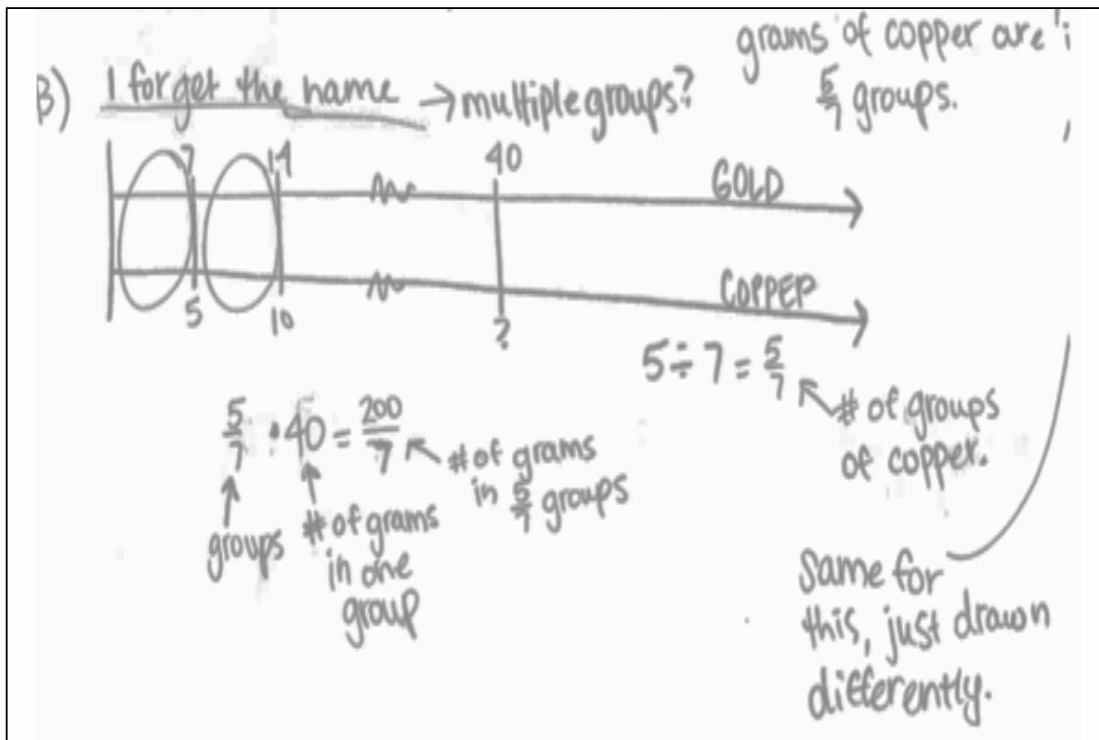 grams of copper are i
5/7 groups.
B) I forget the name → multiple groups?
7 14 40
GOLD
COPPER
5 10 ?
5 ÷ 7 = 5/7
# of groups
of copper.
5/7 · 40 = 200/7
groups
# of grams
in one
group
# of grams
in 5/7 groups
Same for
this, just drawn
differently.